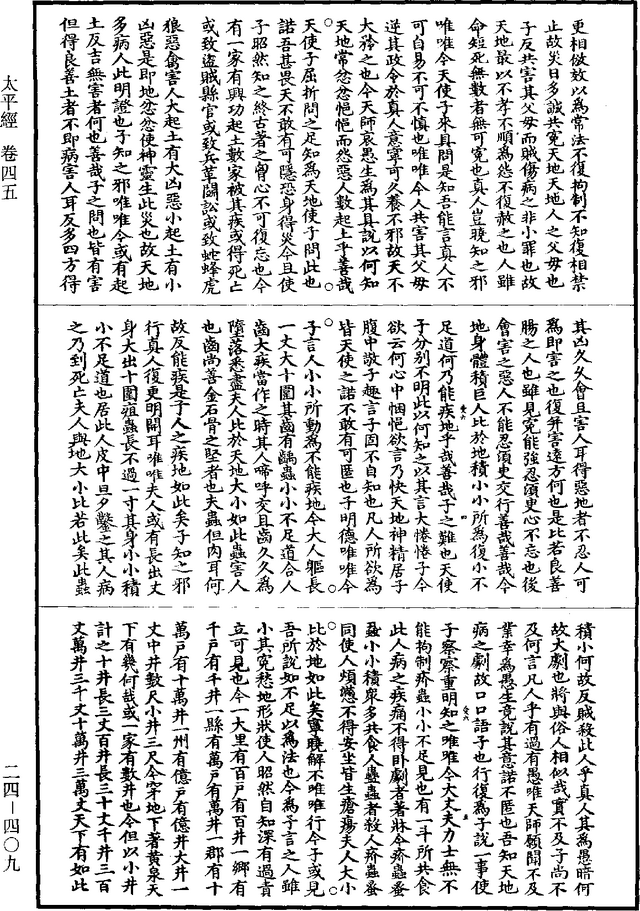 更相倣效以為常法不復拘制不知復相禁
止故災日多誠共冤天地天地人之父母也
子反共害其父母而賊傷病之非小罪也故
天地最以不孝不順為怨不復赦之也人雖
命短死無數者無可冤也真人豈曉知之邪
唯唯今天使子來具問是知吾能言真人不
可自易不可不慎也唯唯今人共害其父母
逆其政令於真人意寧可久養不邪故天不
大矜之也今天師哀愚生為其具說以何知
天地常忿忿悒悒而怨惡人數起土乎善哉
天使子屈折問之足知為天地使子問此也
諾吾甚畏天不敢有可隱恐身得災今且使
子昭然知之終古著之胷心不可復忘也今
有一家有興功起土數家被其疾或得死亡
或致盜賊縣官或致兵革鬭訟或致蛇蜂虎
狼惡禽害人大起土有大凶惡小起土有小
凶惡是即地忿忿使神靈生此災也故天地
多病人此明證也子知之邪唯唯今或有起
土反吉無害者何也善哉子之問也皆有害
但得良善土者不即病害人耳反多四方得
其凶久久會且害人耳得惡地者不忍人可
為即害之也復并害遠方何也是比若良善
腸之人也雖見冤能強忍須臾心不忘也後
會害之惡人不能忍須臾交行善哉善哉今
地身體積巨人比於地積小小所為復小不
足道何乃能疾地乎哉善哉子之難也天使
子分別不明此以何知之以其言大惓惓子今
欲云何心中悃悒欲言乃快天地神精居子
腹中敬子趣言子固不自知也凡人所欲為
皆天使之諾不敢有可匿也子明德唯唯今
子言人小小所動為不能疾地今大人軀長
一丈大十圍其齒有齲蟲小小不足道合人
齒大疾當作之時其人啼呼交且齒久久為
墮落悉盡夫人比於天地大小如此蟲害人
也齒尚善金石骨之堅者也夫蟲但肉耳何
故反能疾是子人之疾地如此矣子知之邪
行真人復更明開耳唯唯夫人或有長出丈
身大出十圍疽蟲長不過一寸其身小小積
小不足道也居此人皮中旦夕鑿之其人病
之乃到死亡夫人與地大小比若此矣此蟲
積小何故反賊殺此人乎真人其為愚暗何
故大劇也將與俗人相似哉實不及子尚不
及何言凡人乎有過有愚唯天師願開不及
業幸為愚生竟說其意諾不匿也吾知天地
病之劇故口口語子也行復為子說一事使
子察察重明知之唯唯今大丈夫力士無不
能拘制疥蟲小小不足見也有一斗所共食
此人病之疾痛不得卧劇者著牀今疥蟲蚤
蝨小小積衆多共食人蟲蠱者殺人疥蟲蚤
同使人煩懣不得安坐皆生瘡瘍夫人大小
比於地如此矣寧曉解不唯唯行今子或見
吾所說如不足以為法也今為子言之人雖
小其冤愁地形狀使人昭然自知深有過責
立可見也今一大里有百戶有百井一鄉有
千戶有千井一縣有萬戶有萬井一郡有十
萬戶有十萬井一州有億戶有億井大井一
丈中井數尺小井三尺今穿地下著黃泉天
下有幾何哉或一家有數井也今但以小井
計之十井長三丈百井長三十丈千井三百
丈萬井三千丈十萬井三萬丈天下有如此
太平經 卷四五
二四—四〇九